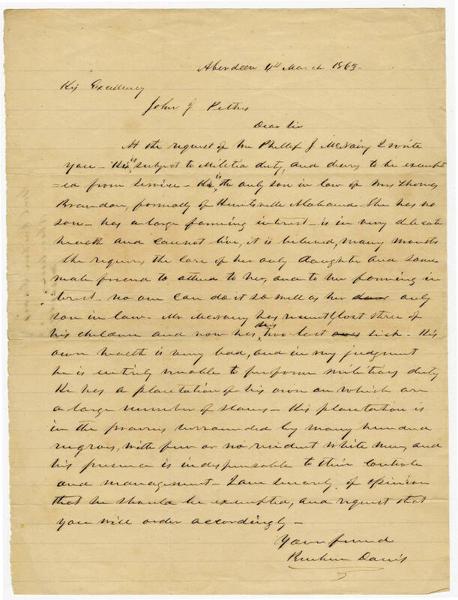 Aberdeen 4th March 1863
His Excellency
John J Pettus
Dear Sir
At the request of Mr Phillip J McNairy I write
you – He is subject to Militia duty, and desires to be exempt
=ed from service – He is the only son in law of Mrs Thomas
Brandon, formerly of Huntsville Alabama. She has no
son – has a large farming interest – is in very delicate
health and cannot live, it is believed, many months
She requires the care of her only daughter and some
male friend to attend to her, and to her farming in
terest no one can do it so well as her only
son in law – Mr McNairy has recently lost three of
his children and now has his two last sick. His
own health is very bad, and in my judgment
he is entirely unable to preform military duty
He has a plantation of his own on which are
a large number of slaves – His plantation is
in the prairies surrounded by many hundred
negroes, with few or no resident white men, and
his presence is indispensable to their controle
and management – I am sincerely of opinion
that he should be exempted, and request that
you will order accordingly –
Your friend
Reuben Davis